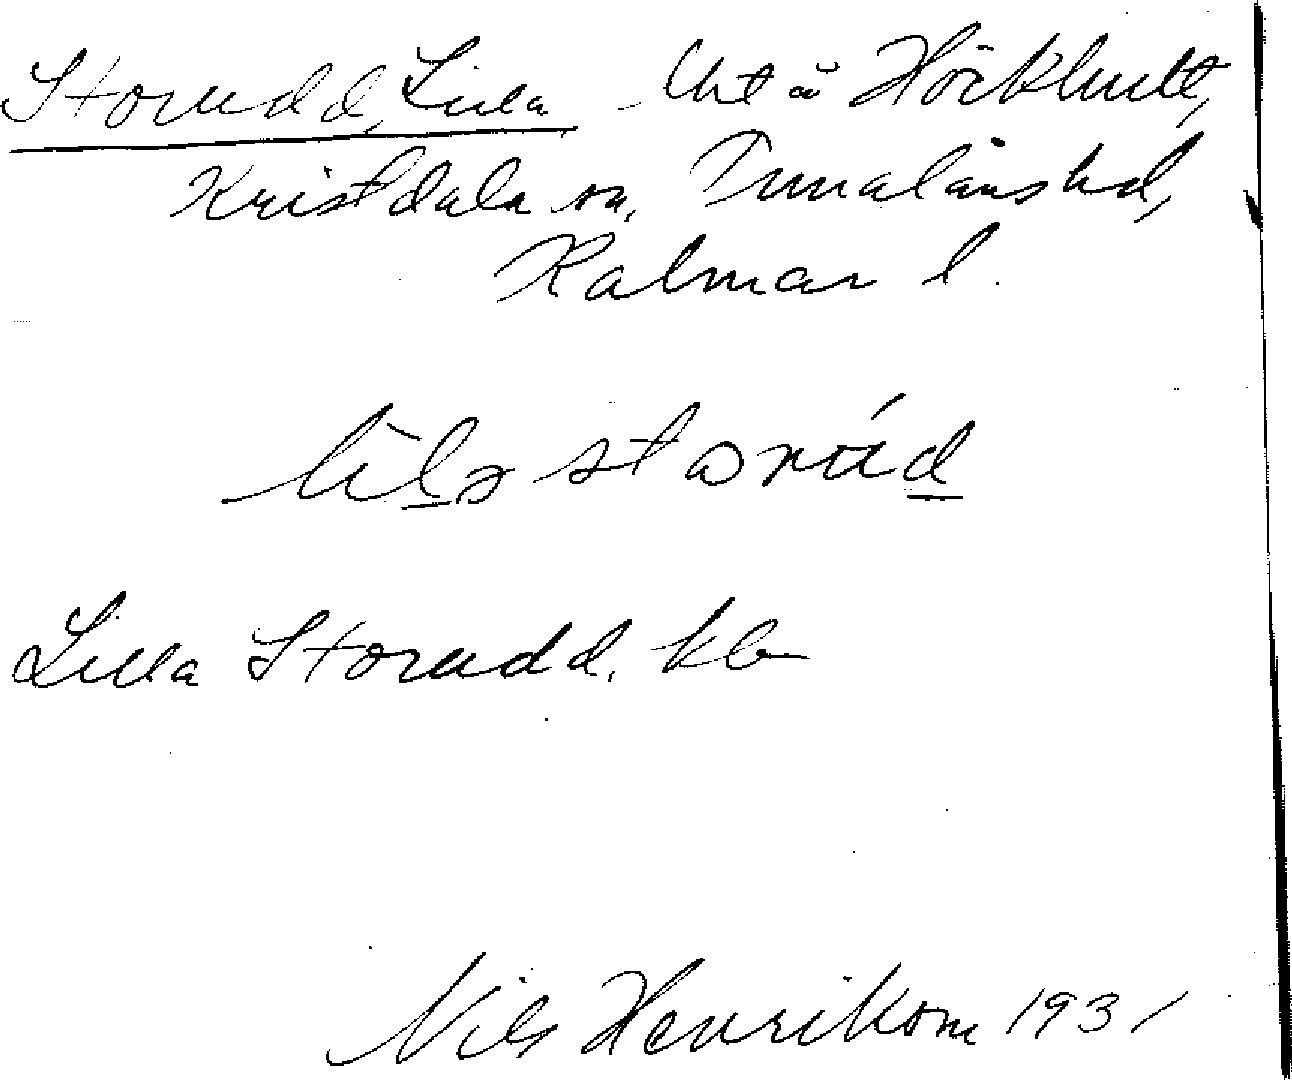 Storudd, Lilla Ut å Hökhult,
Kristdala sn, Tunaläns hd,
Kalmar l.
lìlə storúd
Lilla Storudd, kb
Nils Henrikson 1931